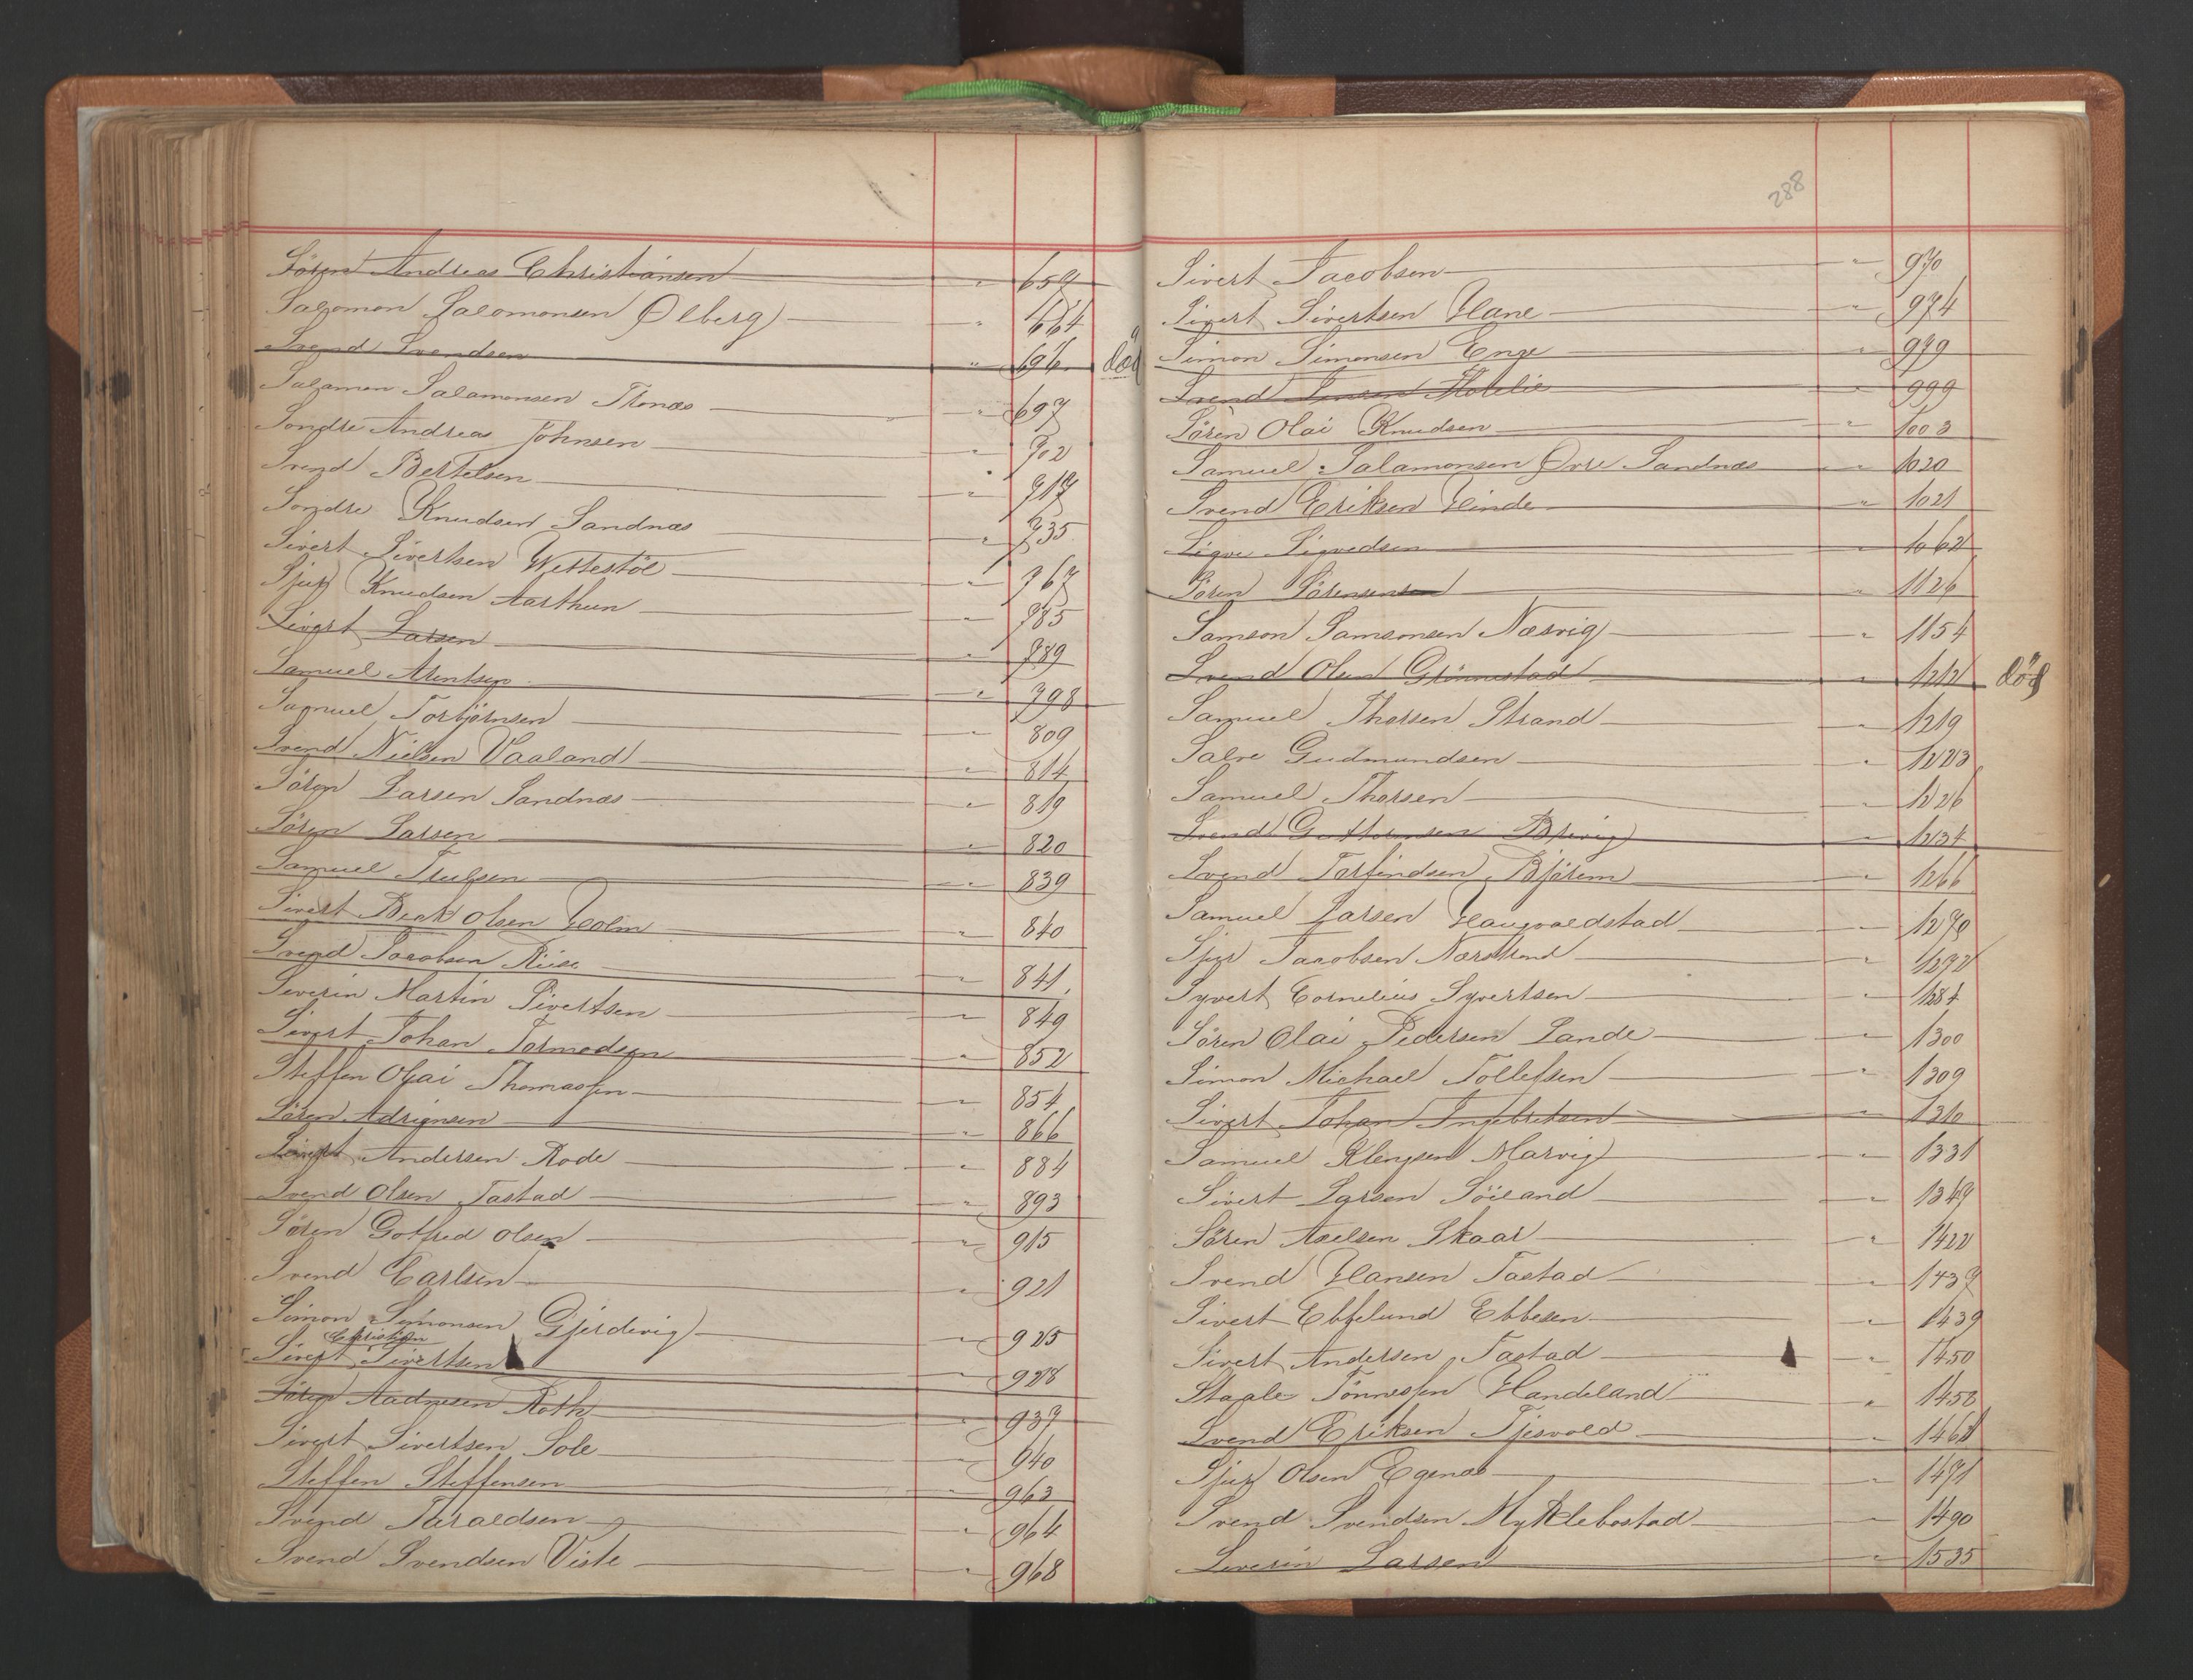 Sören Andreas Christiansen " 659
Salomon Salomonsen Ølberg " 664
Svend Svendsen " 696 död
Salamon Salamonsen Thonæs " 697
Sondre Andreas Johnsen " 702
Svend Bertelsen " 717
Sondre Knudsen Sandnæs " 735
Sivert Sivertsen Wettestöl " 767
Sjur Knudsen Aarthun " 785
Sivert Larsen " 789
Samuel Arentsen " 798
Samuel Torbjörnsen " 809
Svend Nielsen Vaaland " 814
Sören Larsen Sandnæs " 819
Sören Larsen " 820
Samuel Trulsen " 839
Sivert Olsen Holm " 840
Svend Jacobsen Riise " 841
Severin Martin Sivertsen " 849
Sivert Johan Tormodsen " 852
Steffen Olai Thomassen " 854
Sören Adriansen " 866
Sivert Andersen Rode " 884
Svend Olsen Tastad " 893
Sören Gotfred Olsen " 915
Svend Carlsen " 921
Simon Simonsen Gjerdevig " 925
Christian
Sivert Sivertsen " 928
Sören Aadnesen Roth " 937
Sivert Sivertsen Sole " 940
Steffen Steffensen " 963
Svend Taraldsen " 964
Svend Svendsen Viste " 968
288
Sivert Jacobsen " 970
Sivert Sivertsen Hane " 974
Simon Simonsen Enge " 979
Svend Jensen " 999
Sören Olai Knudsen " 1003
Samuel Salamonsen Øvre Sandnæs " 1020
Svend Eriksen Hinde " 1021
Sigve Sigvedsen " 1062
Sören Sörensen " 1126
Samson Samsonsen Næsvig " 1154
Svend Olsen Grönnestad " 1212 död
Samuel Thorsen Strand " 1219
Salve Gudmundsen " 1223
Samuel Thorsen " 1226
Svend Guttormsen " 1234
Svend Torfindsen Bjerem " 1266
Samuel Larsen Haugvaldstad " 1270
Sjur Jacobsen Nærstrand " 1292
Syvert Cornelius Syvertsen " 1284
Sören Olai Pedersen Lande " 1300
Simon Michael Tollefsen " 1309
Sivert Johan Ingebretsen " 1310
Samuel Klengsen Marvig " 1331
Sivert Larsen Söiland " 1349
Sören Axelsen Skaar " 1422
Svend Hansen Tastad " 1437
Sivert Ebbelund Ebbesen " 1439
Sivert Andersen Tastad " 1450
Staale Tönnessen Handeland " 1458
Svend Eriksen Tjesvold " 1468
Sjur Olsen Egenæs " 1471
Svend Svendsen Myklebostad " 1490
Severin Larsen " 1535